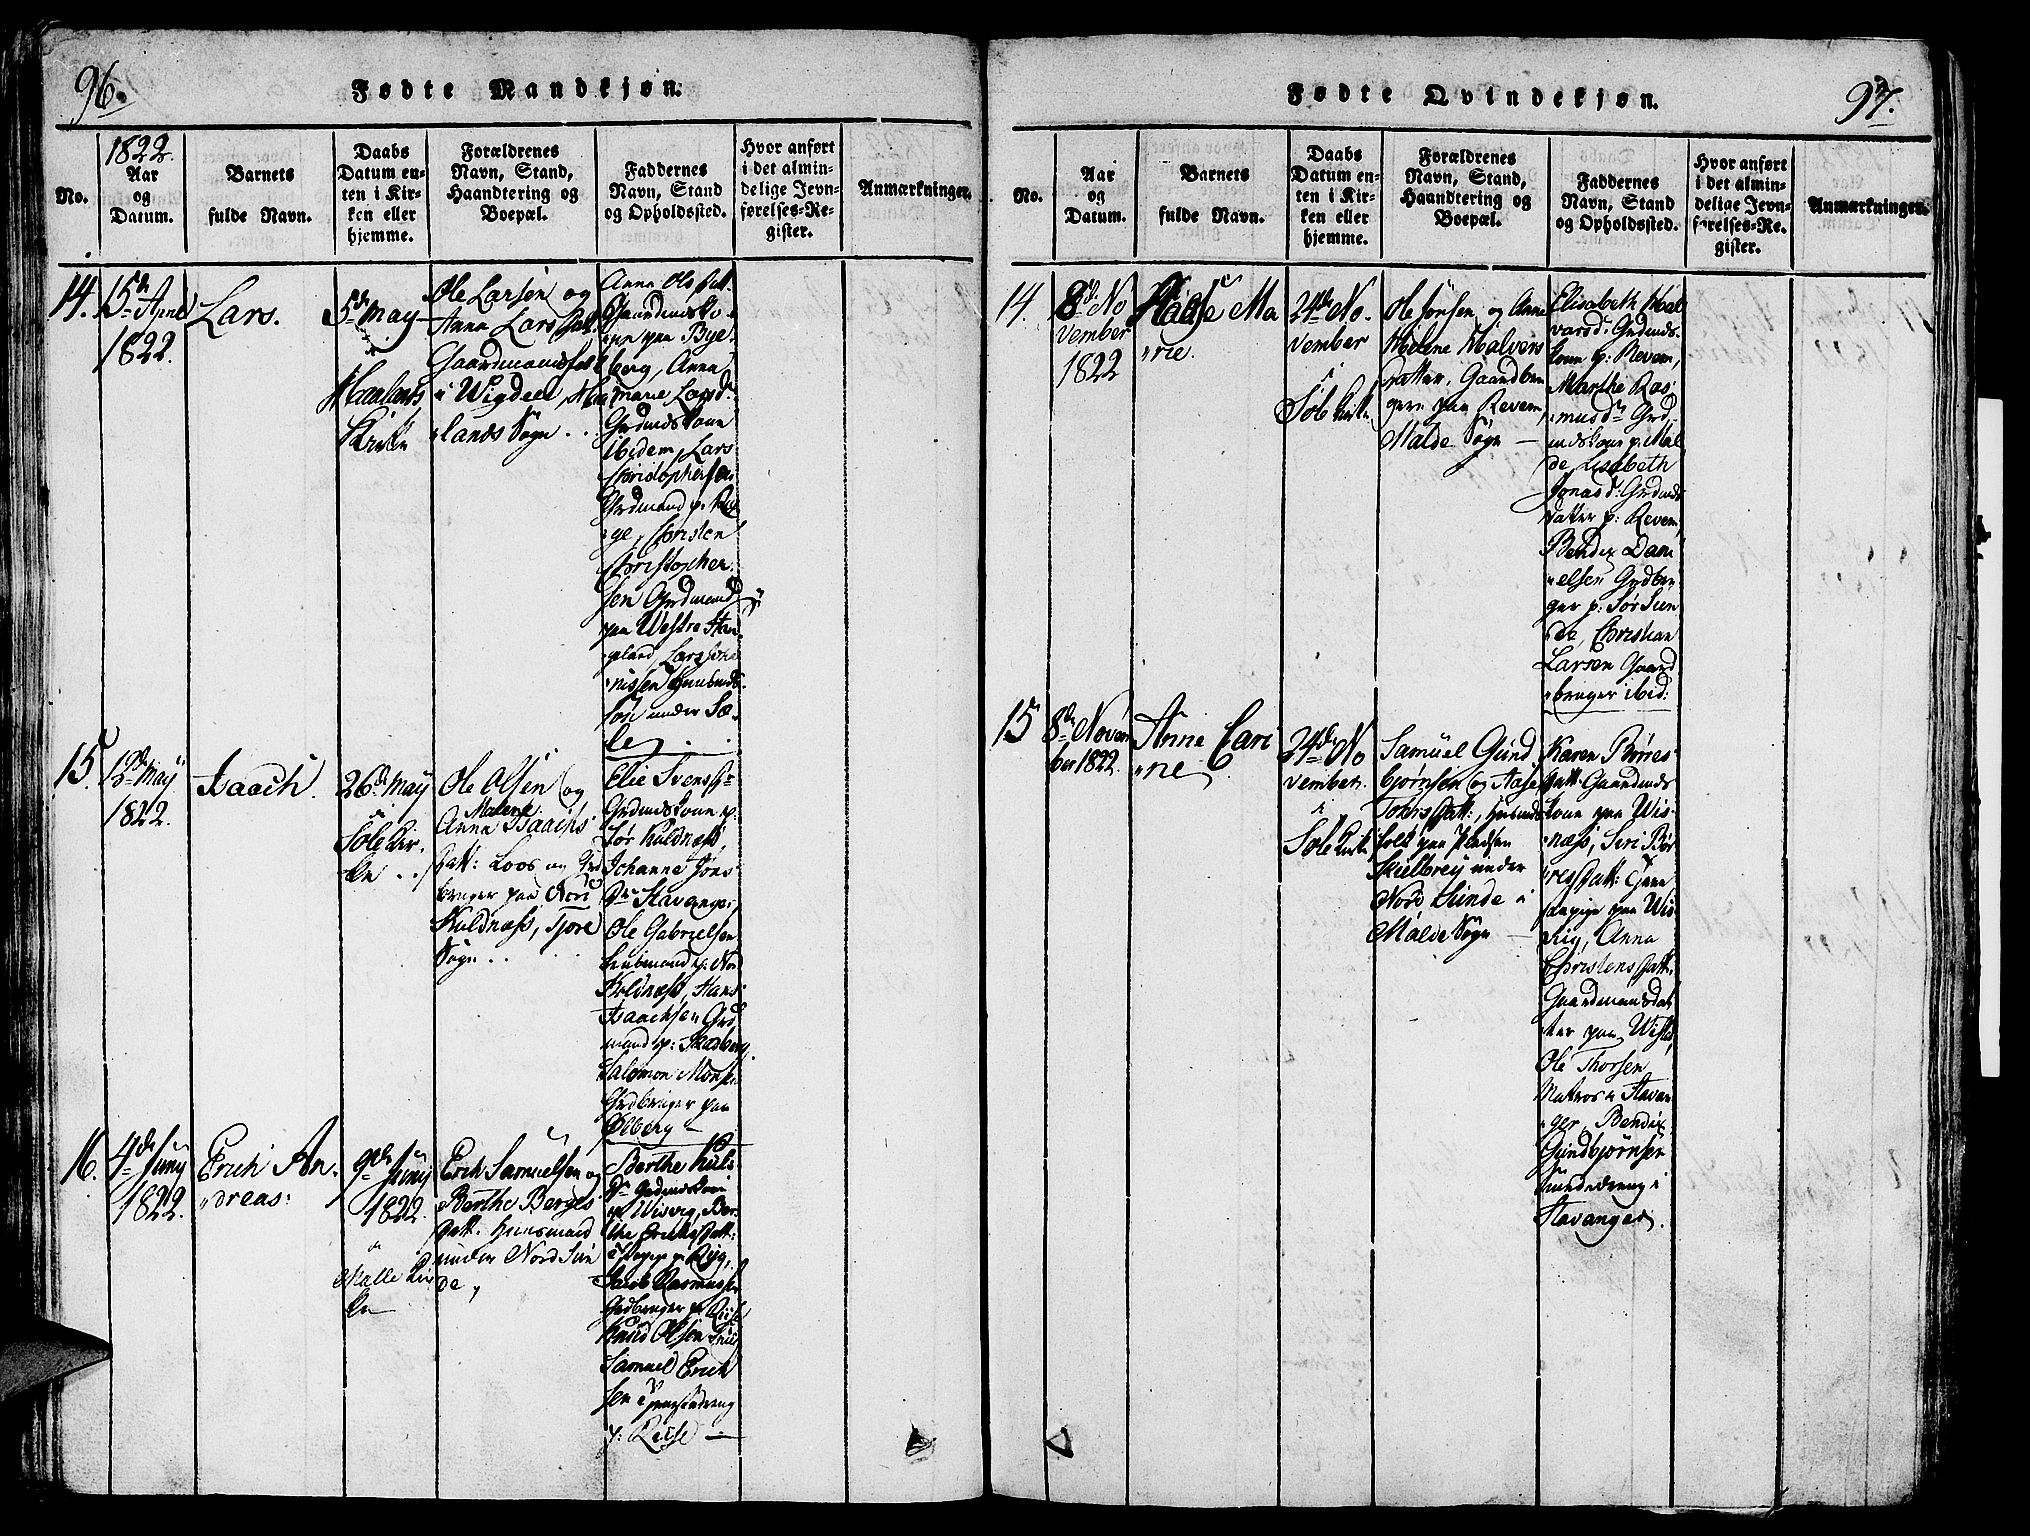 96.
Fødte Mandkjøn.
No.
1822.
Aar
og
Datum.
Barnets
fulde Navn.
Daabs
Datum en-
ten i Kir-
ken eller
hjemme.
Forældrenes
Navn, Stand,
Haandtering og
Boepæl.
Faddernes
Navn, Stand
og Opholdssted.
Hvor anført
i det almin-
delige Jevn-
førelses-Re-
gister.
Anmærkninger.
14.
15de April
1822.
Lars.
5de May
Kirke
Ole Larsen og
Anna Lars Datt.
Gaardmandsfolk
i Wigdeel, Haa
lands Sogn . .
Anna Ols Datt.
Gaardmandsko
ne paa Bye
berg, Anna
marie Larsd:
Grdmdskone
ibidem, Lars
Christophersen
Grdmand p: Ry
ge, Christen
Christopher
sen Grdmand
paa Westre Han
geland, Lars Joha
nissen
løse under Sæ-
le . .
15
12de May
1822.
Isaach.
26de May
i
Sole Kir-
ke . .
Ole Olsen og
Malene
Anna Isaachs
Datt: Loos og Grd
bruger paa Nord
Kuldnæss, Tjore
Sogn . .
Elie Svens Dr
Grdmdskone p:
Sør Kuldnæss,
Johanne Jons
Dr Stavanger,
Ole Gabrielsen
p: Nord
Koldnæss, Hans
Isaachsen Grd
mand p: Skadberg,
Salomon Monsen
Grdbruger paa
Ølberg —
16.
4de Juny
1822.
Erich An
dreas:
9de Juny
1822.
i
Malle Kir
ke
Erich Samuelsen og
Berthe Berges
Datt. Huusmand
under Nord Sun
de,
Berthe
Dr Grdmdskone
p: Wisvig, Ber
the Erichs Datt:
Pige p: Ryg,
Jacob Rasmussen
Grdbruger p:
Knud Olsen
Samuel Erich
sen
p:
97.
Fødte Qvindekjøn.
No.
Aar
og
Datum.
Barnets
fulde Navn.
Daabs
Datum en-
ten i Kir-
ken eller
hjemme.
Forældrenes
Navn, Stand,
Haandtering og
Boepæl.
Faddernes
Navn, Stand
og Opholdssted.
Hvor anført
i det almin-
delige Jevn-
førelses-Re-
gister.
Anmærkninger.
14.
8de No
vember
1822
Ma
rie.
24de No-
vember
i
Sole Kirke
Ole Jonsen og Anne
Helene Halvors
Datter, Gaardbru
gere paa Revem,
Malde Sogn —
Elisabeth Hal
varsd: Grdmds-
kone p: Revem,
Marthe Ras
musdr Grd
mdskone p: Mal
de, Lisabeth
Jonasd: Grdmds
datter p: Revem,
Bendix Dani
elsen Grdbru
ger p: Sør Sun
de, Christian
Larsen Gaard
bruger ibid:
15
8de Novem
ber 1822.
Anne Cari
ne
24de No
vember
i
Sole Kirke
Samuel Gund
bjørnsen og Aase
Tores Datt:, Huusmds
folk paa Pladsen
Skielbrey under
Nord Sunde i
Malde Sogn —
Karen Børres
Datt: Gaardmds
kone paa Wis
næss, Siri Bør
res Datt: Tjene
stepige paa Wis
tig, Anna
Christens Datt:
Gaardmandsdat
ter paa Wisted,
Ole Thorsen
Matros i Stavan
ger, Bendix
Gundbjørnsen
i
Stavanger.